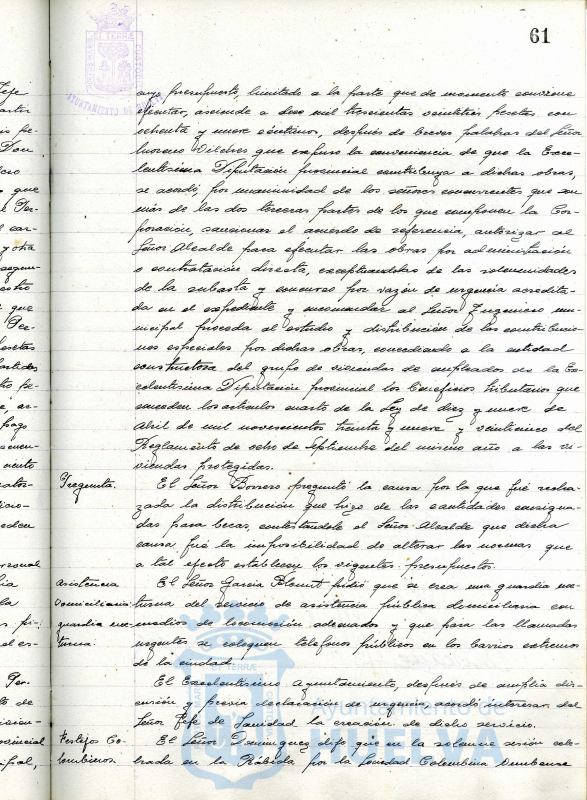 61
AYUNTAMIENTO DE HUELVA
cuyo presupuesto, limitado a la parte que de momento conviene
ejecutar, asciende a doce mil trescientas veintitres pesetas con
ochenta y nueve céntimos, después de breves palabras del Señor
Moreno Vilches que expuso la conveniencia de que la Exce-
lentísima Diputación provincial contribuya a dichas obras,
se acordó, por unanimidad de los señores concurrentes que son
más de las dos terceras partes de los que componen la Cor-
poración, sancionar el acuerdo de referencia, autorizar al
Señor Alcalde para ejecutar las obras por administración
o contratación directa, exceptuandolas de las solemnidades
de la subasta y concurso por razón de urgencia acredita-
da en el expediente y encomendar al Señor Ingeniero mu-
nicipal proceda al estudio y distribución de las contribucio-
nes especiales por dichas obras, concediendo a la entidad
constructora del grupo de viviendas de empleados de la Ex-
celentísima Diputación provincial los beneficios tributarios que
conceden los artículos cuarto de la Ley de diez y nueve de
Abril de mil novecientos treinta y nueve y veinticinco del
Reglamento de ocho de Septiembre del mismo año a las vi-
viendas protegidas.
Pregunta. El Señor Borrero preguntó la causa por la que fué recha-
zada la distribución que hizo de las cantidades consigna-
das para becas, contestándole el Señor Alcalde que dicha
causa fué la imposibilidad de alterar las normas que
a tal efecto establecen los vigentes presupuestos.
Asistencia El Señor García pidió que se crea una guardia noc-
domiciliaria: turna del servicio de asistencia pública domiciliaria con
guardia noc- medios de locomoción adecuados y que para las llamadas
turna. urgentes se coloquen teléfonos públicos en los barrios extremos
de la ciudad.
El Excelentísimo Ayuntamiento, después de amplia dis-
cusión y previa declaración de urgencia, acordó interesar del
Señor Jefe de Sanidad la creación de dicho servicio.
Festejos Co- El Señor Dominguez dijo que en la solemne sesión cele-
lombinos. brada en la Rábida por la Sociedad Colombina Onubense
Ayuntamiento de
HUELVA